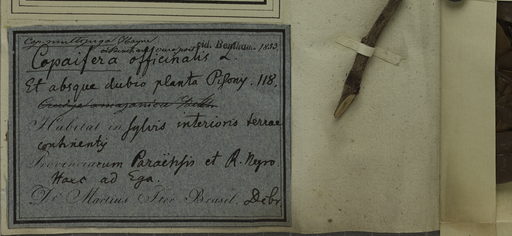 Cop. multijuga Hayne
sid. Benthm. 1853.
Copaifera officinalis L.
Et absque dubio planta Pisony. 118.
Habitat in Sylvis interioris terrae
continentis
Provinciarum Paraënsis et R. Negro
Haec ad Ega.
Dr. Martius Iter Brasil. Debr.